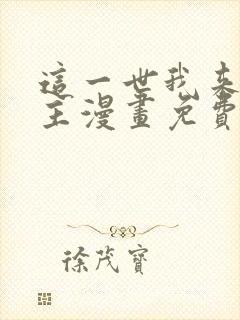 這一世我來
主漫畫免費
徐茂寶